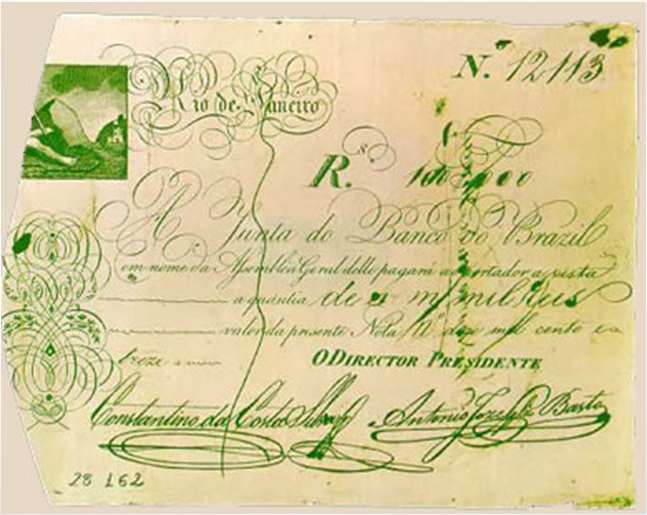 Nº 12113
Rio de Janeiro
Rs.
A Junta do Banco do Brazil
em nome da Assemblea Geral delle pagará ao portador a vista
a quantia de mil Reis
valor da presente Nota Nº doze mil cento e
treze
O DIRECTOR PRESIDENTE
Constantino da Costa
Antonio Joze da Costa Basto
28 162